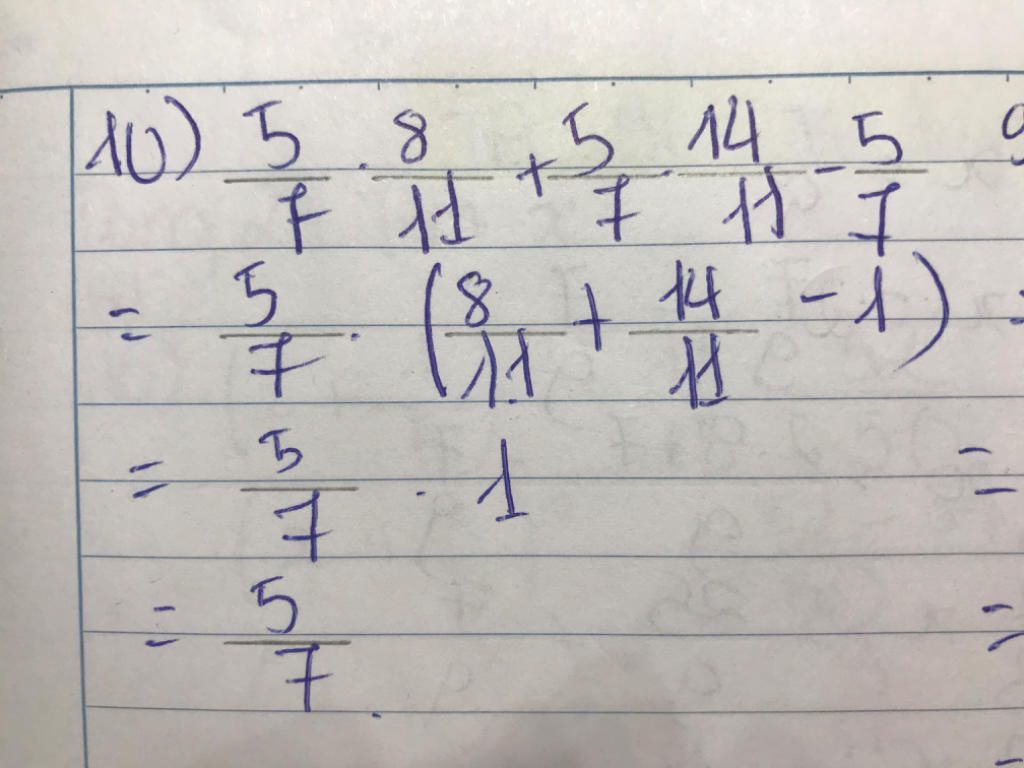 10) 5/7 · 8/11 + 5/7 · 14/11 - 5/7
= 5/7 · (8/11 + 14/11 - 1)
= 5/7 · 1
= 5/7.